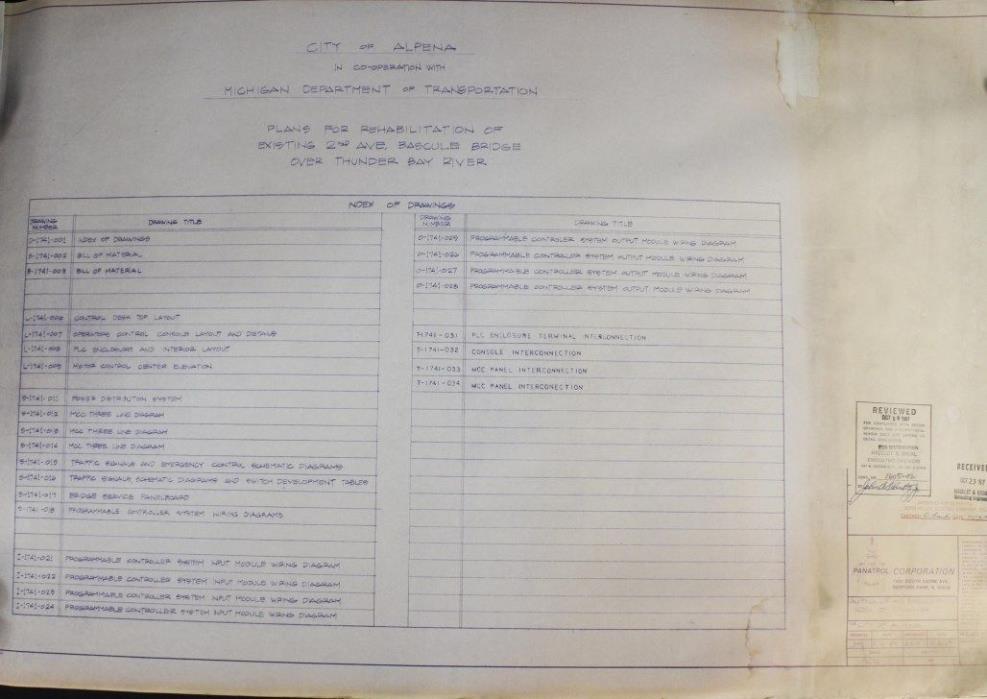 CITY OF ALPENA
IN CO-OPERATION WITH
MICHIGAN DEPARTMENT OF TRANSPORTATION
PLANS FOR REHABILITATION OF
EXISTING 2ND AVE. BASCULE BRIDGE
OVER THUNDER BAY RIVER
INDEX OF DRAWINGS
DRAWING NUMBER DRAWING TITLE
D-1741-001 INDEX OF DRAWINGS
B-1741-002 BILL OF MATERIAL
B-1741-003 BILL OF MATERIAL
L-1741-006 CONTROL DESK TOP LAYOUT
L-1741-007 OPERATORS CONTROL CONSOLE LAYOUT AND DETAILS
L-1741-008 PLC ENCLOSURE AND INTERIOR LAYOUT
L-1741-009 MOTOR CONTROL CENTER ELEVATION
S-1741-011 POWER DISTRIBUTION SYSTEM
S-1741-012 MCC THREE LINE DIAGRAM
S-1741-013 MCC THREE LINE DIAGRAM
S-1741-014 MCC THREE LINE DIAGRAM
S-1741-015 TRAFFIC SIGNALS AND EMERGENCY CONTROL SCHEMATIC DIAGRAMS
S-1741-016 TRAFFIC SIGNALS, SCHEMATIC DIAGRAMS AND SWITCH DEVELOPMENT TABLES
S-1741-017 BRIDGE SERVICE PANELBOARD
S-1741-018 PROGRAMMABLE CONTROLLER SYSTEM WIRING DIAGRAMS
I-1741-021 PROGRAMMABLE CONTROLLER SYSTEM INPUT MODULE WIRING DIAGRAM
I-1741-022 PROGRAMMABLE CONTROLLER SYSTEM INPUT MODULE WIRING DIAGRAM
I-1741-023 PROGRAMMABLE CONTROLLER SYSTEM INPUT MODULE WIRING DIAGRAM
I-1741-024 PROGRAMMABLE CONTROLLER SYSTEM INPUT MODULE WIRING DIAGRAM
DRAWING NUMBER DRAWING TITLE
O-1741-025 PROGRAMMABLE CONTROLLER SYSTEM OUTPUT MODULE WIRING DIAGRAM
O-1741-026 PROGRAMMABLE CONTROLLER SYSTEM OUTPUT MODULE WIRING DIAGRAM
O-1741-027 PROGRAMMABLE CONTROLLER SYSTEM OUTPUT MODULE WIRING DIAGRAM
O-1741-028 PROGRAMMABLE CONTROLLER SYSTEM OUTPUT MODULE WIRING DIAGRAM
T-1741-031 PLC ENCLOSURE TERMINAL INTERCONNECTION
T-1741-032 CONSOLE INTERCONNECTION
T-1741-033 MCC PANEL INTERCONNECTION
T-1741-034 MCC PANEL INTERCONECTION
REVIEWED
RECEIVED
OCT 23 '87
PANATROL CORPORATION